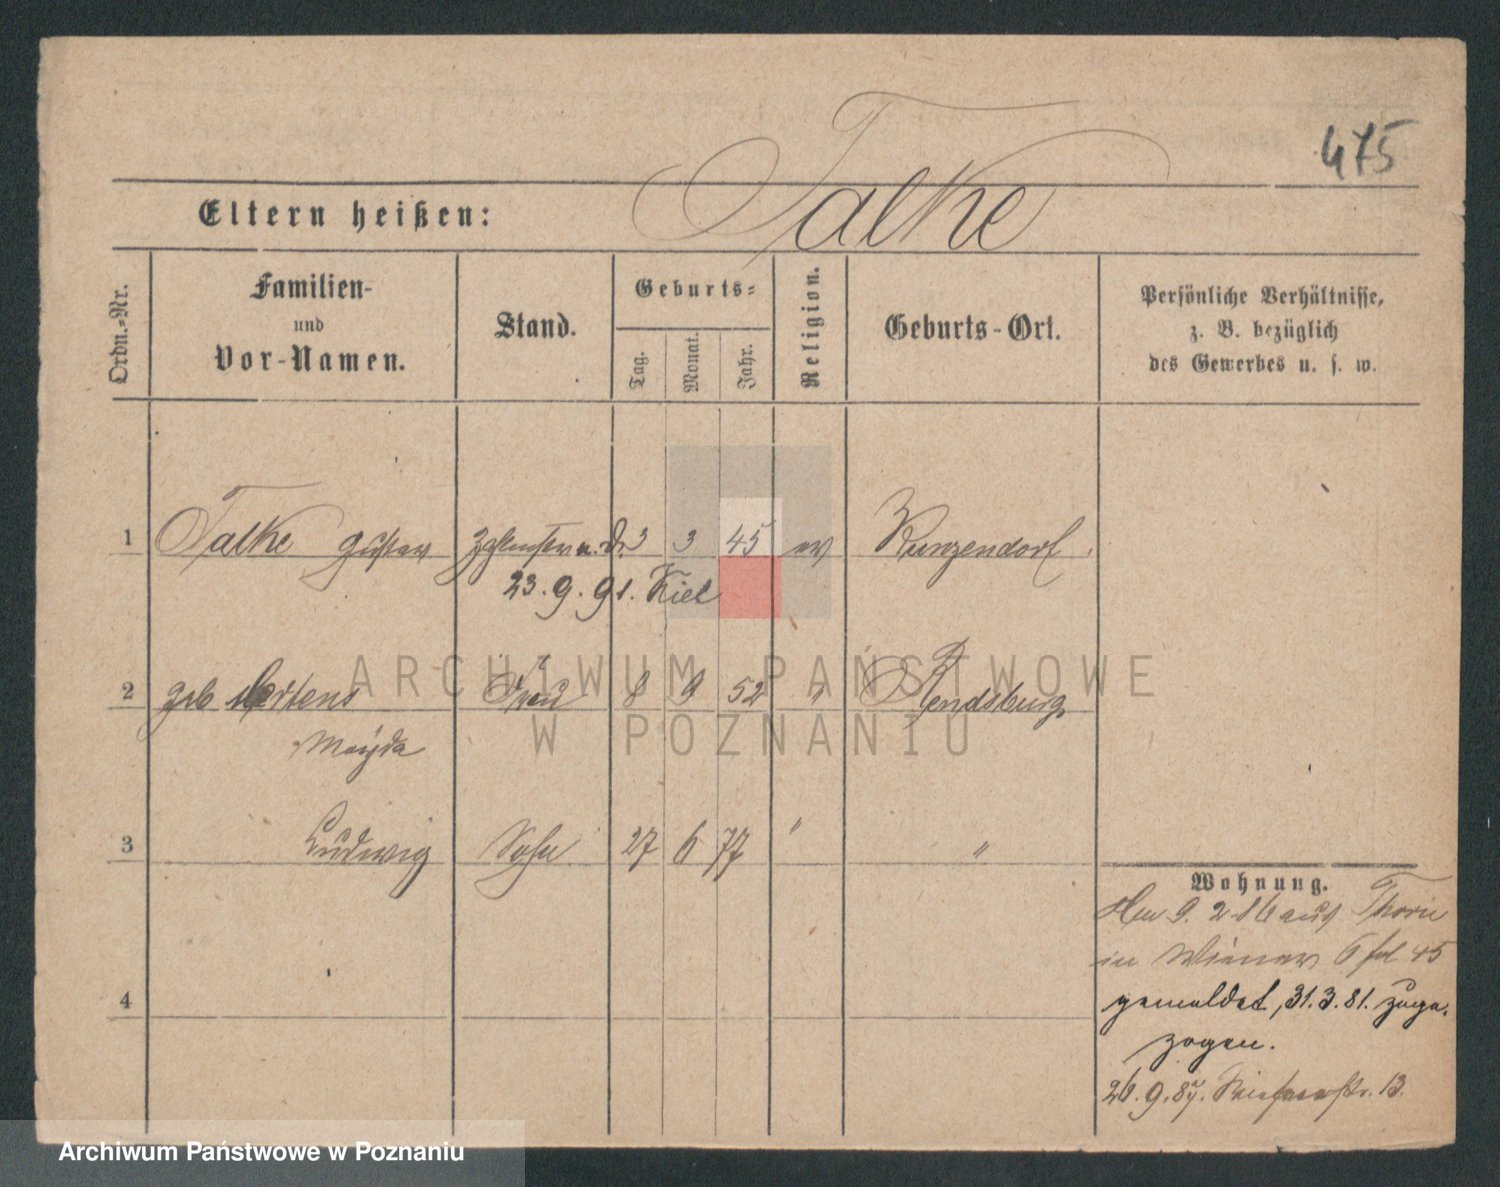 475
Eltern heißen: Falke
Ordn.-Nr.
Familien-
und
Vor-Namen.
Stand.
Geburts-
Tag.
Monat.
Jahr.
Religion.
Geburts-Ort.
Persönliche Verhältnisse,
z. B. bezüglich
des Gewerbes u. s. w.
1 Falke Gustav 3 3 45 ev Kunzendorf
23.9.91. Kiel
2 geb Mertens Frau 8 9 52 " Rendsburg
3 Ludwig Sohn 27 6 77 " "
4
Wohnung.
9. 2 86 aus Thorn
in Wiener 6 45
gemeldet, 31.3.81. zuge-
zogen.
26.9.87. 13.
ARCHIWUM PAŃSTWOWE
W POZNANIU
Archiwum Państwowe w Poznaniu